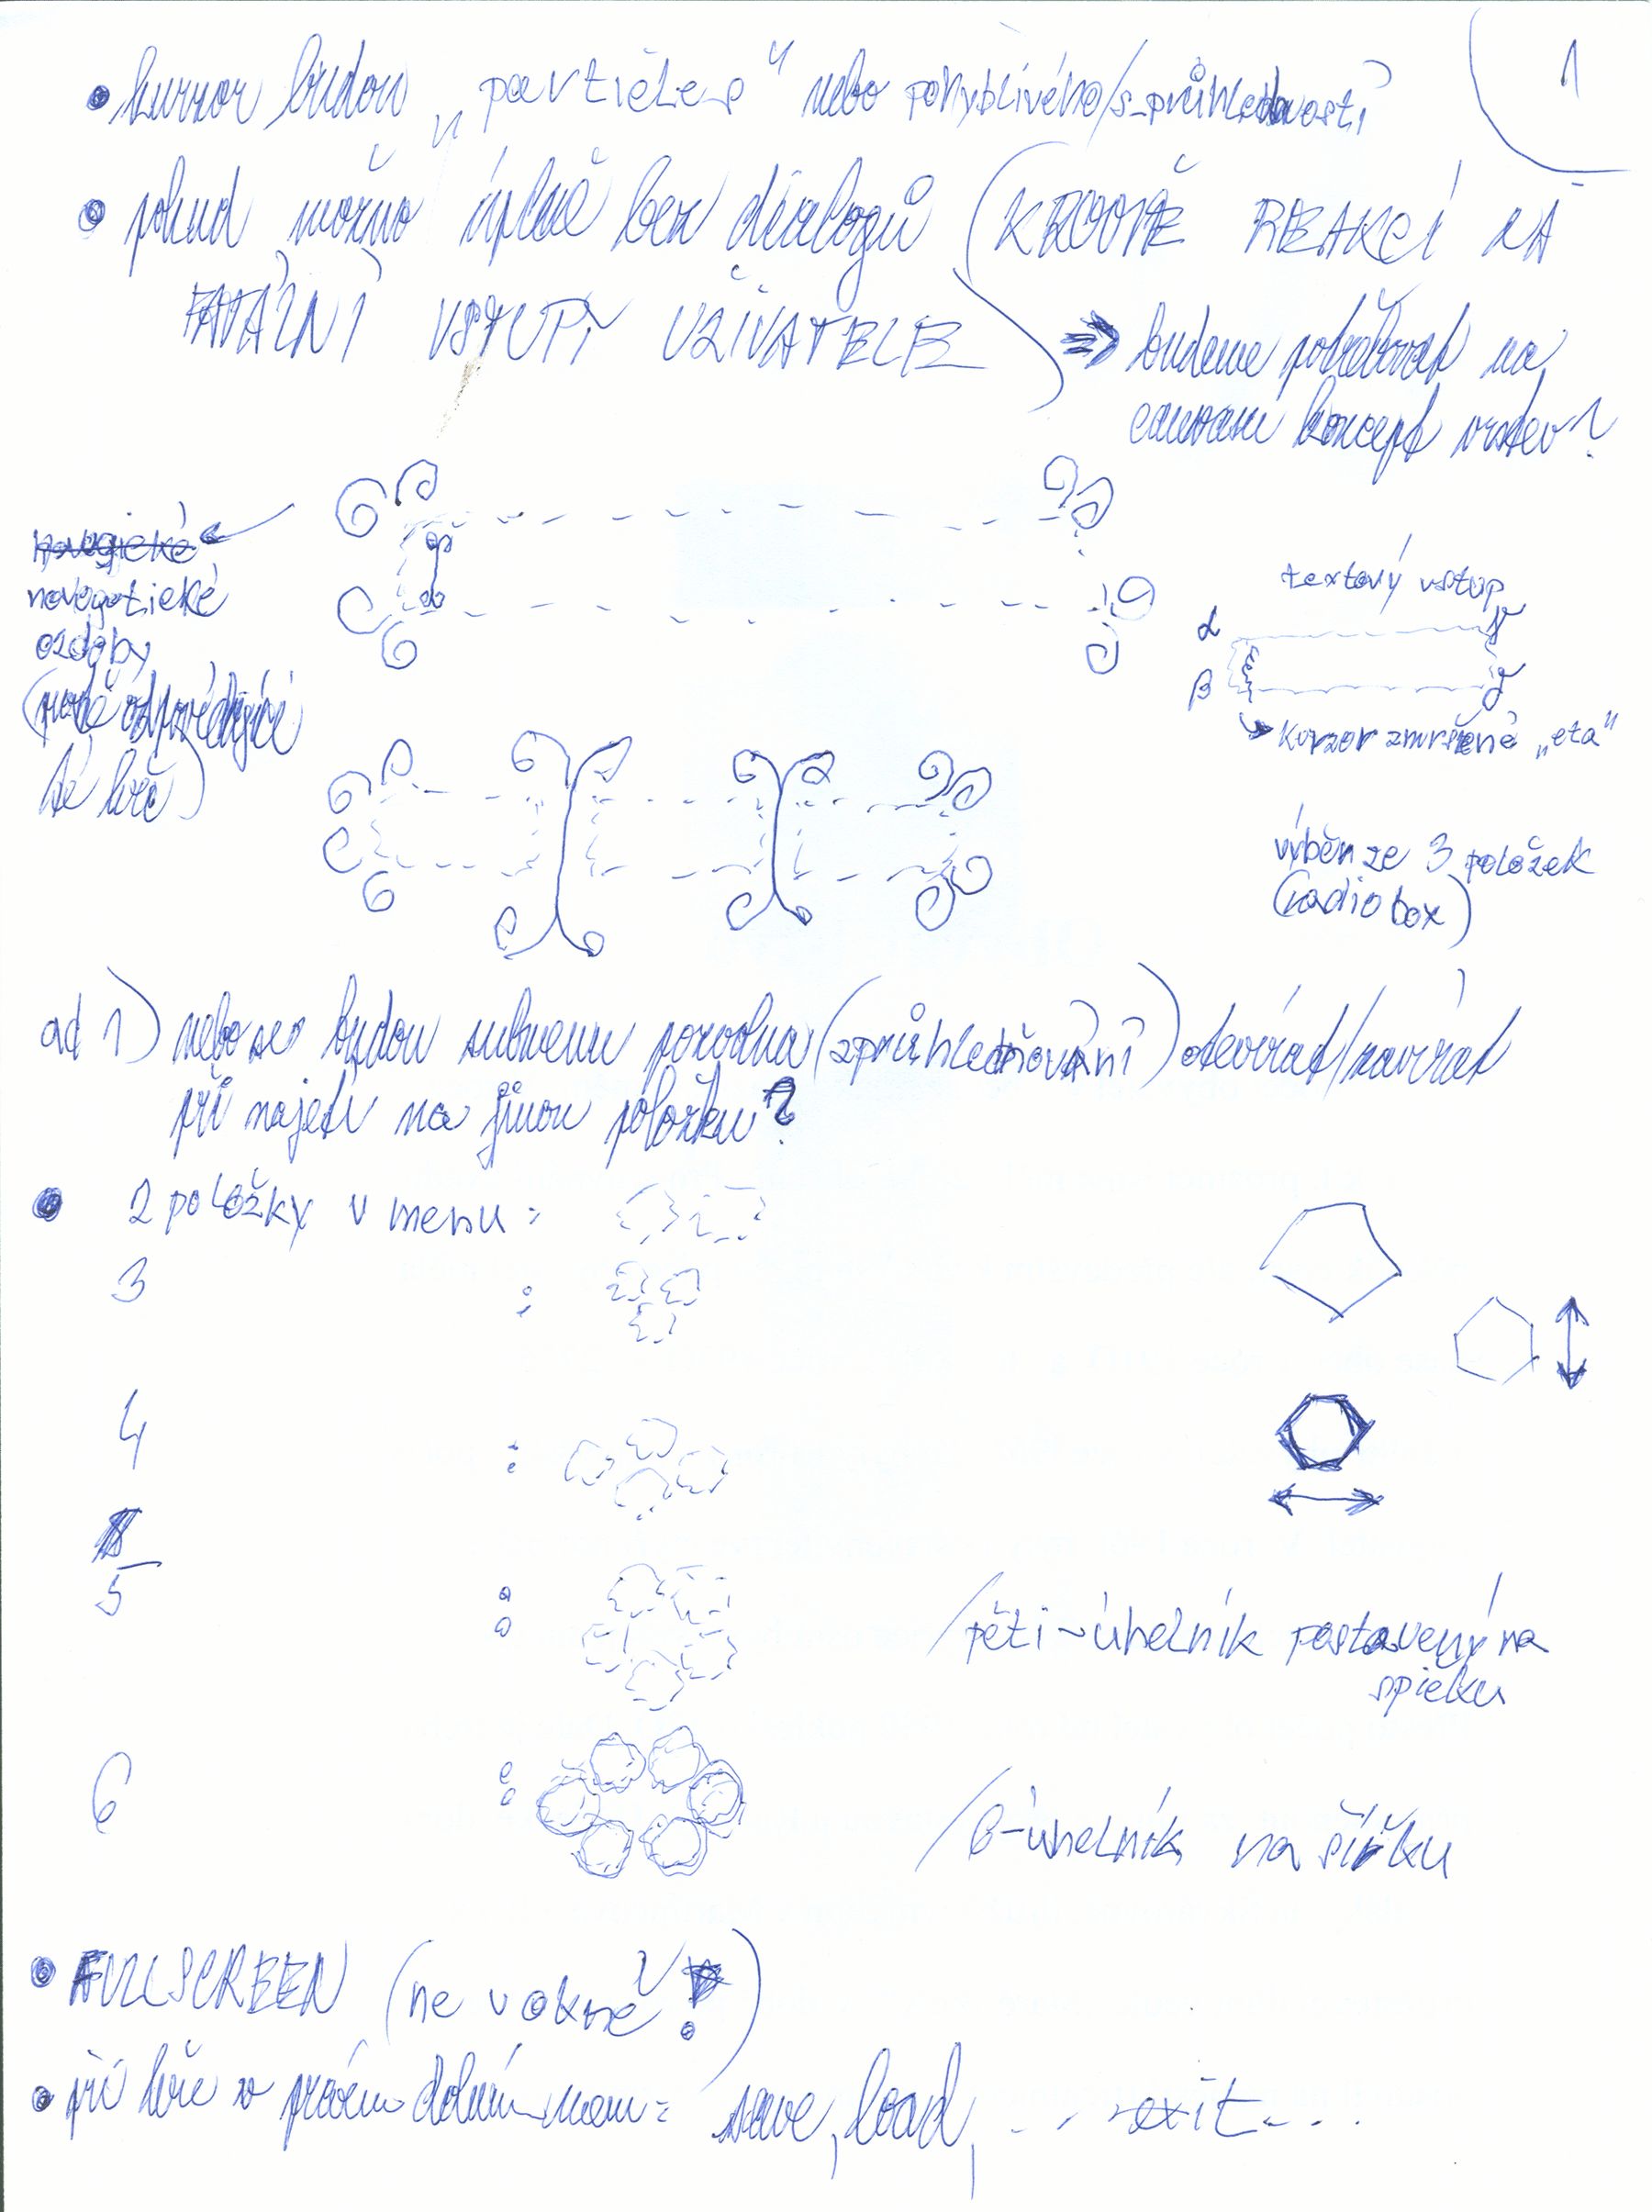 1
• kurzor budou „particles“ nebo pohyblivého/s průhledností
• pokud možno úplně bez dialogů (KROMĚ REAKCÍ NA
FATÁLNÍ VSTUPY UŽIVATELE)
⇒ budeme potřebovat na
canvasu koncept vrstev?
novogotické
ozdoby
(právě odpovídající
té hře)
textový vstup
α
β
kurzor zmršené „eta“
výběr ze 3 položek
(radiobox)
ad 1) nebo se budou submenu pozvolna (zprůhledňování) otevírat/zavírat
při najetí na jinou položku?
• 2 položky v menu:
3 :
4 :
5 : /pěti-úhelník postavený na
špičku
6 : /6-úhelník na šířku
• FULLSCREEN (ne v okně!)
• při hře v pravém dolním menu: save, load, ... exit...